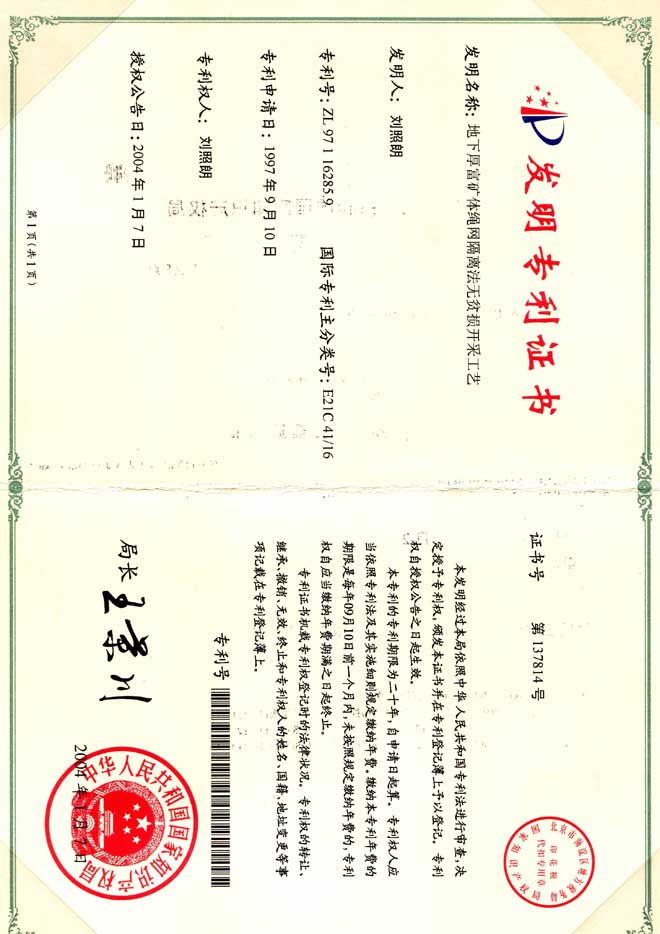 发明专利证书
发明名称：地下厚富矿体绳网隔离法无贫损开采工艺
发明人：刘照朗
专利号：ZL 97 1 16285.9 国际专利主分类号：E21C 41/16
专利申请日：1997年9月10日
专利权人：刘照朗
授权公告日：2004年1月7日
第1页(共1页)
证书号 第137814号
本发明经过本局依照中华人民共和国专利法进行审查，决
定授予专利权，颁发本证书并在专利登记簿上予以登记。专利
权自授权公告之日起生效。
本专利的专利期限为二十年，自申请日起算。专利权人应
当依照专利法及其实施细则规定缴纳年费。缴纳本专利年费的
期限是每年09月10日前一个月内，未按照规定缴纳年费的，专利
权自应当缴纳年费期满之日起终止。
专利证书机载专利权登记时的法律状况。专利权的转让、
继承、撤销、无效、终止和专利权人的姓名、国籍、地址变更等事
项记载在专利登记簿上。
专利号
局长 王景川
2004年1月7日
中华人民共和国国家知识产权局
代扣专用章